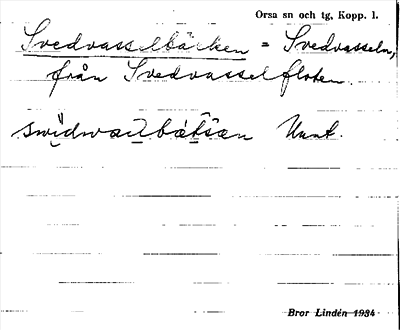 Orsa sn och tg, Kopp. l.
Svedvasselbäcken = Svedvasseln,
från Svedvasselfloten.
Uunt.
Bror Lindén 1934